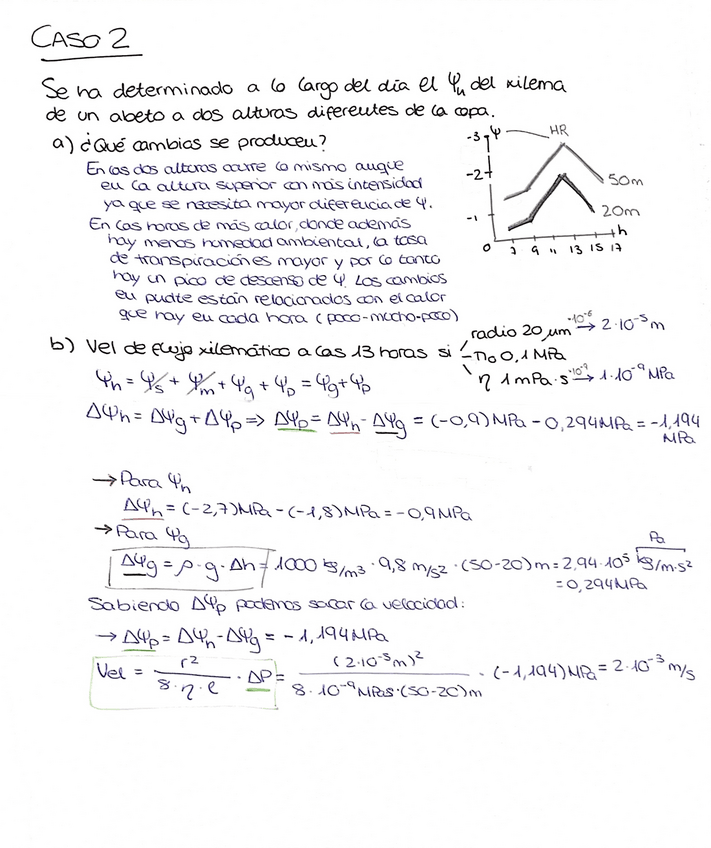 CASO 2
Se ha determinado a lo largo del día el Ψh del xilema
de un abeto a dos alturas diferentes de la copa.
a) ¿Qué cambios se producen?
En las dos alturas ocurre lo mismo auque
en la altura superior con más intensidad
ya que se necesita mayor diferencia de Ψ.
En las horas de más calor, donde además
hay menos humedad ambiental, la tasa
de transpiración es mayor y por lo tanto
hay un pico de descenso de Ψ. Los cambios
en están relacionados con el calor
que hay en cada hora (poco-mucho-poco)
-3 Ψ HR
-2
-1
50m
20m
h
0 7 9 11 13 15 17
b) Vel de flujo xilemático a las 13 horas si
radio 20 μm ·10⁻⁶→ 2·10⁻⁵ m
0,1 MPa
η 1 mPa·s ·10⁻⁹→ 1·10⁻⁹ MPa
Ψh = Ψs + Ψm + Ψg + Ψp = Ψg+Ψp
ΔΨh = ΔΨg + ΔΨp ⇒ ΔΨp = ΔΨh - ΔΨg = (-0,9)MPa - 0,294MPa = -1,194
MPa
→ Para Ψh
ΔΨh = (-2,7)MPa - (-1,8)MPa = -0,9MPa
→ Para Ψg
Pa
ΔΨg = ρ·g·Δh = 1000 kg/m³ · 9,8 m/s² · (50-20)m = 2,94·10⁵ kg/m·s²
= 0,294MPa
Sabiendo ΔΨp podemos sacar la velocidad:
→ ΔΨp = ΔΨh - ΔΨg = -1,194MPa
Vel = r² / 8·η·l · ΔP = (2·10⁻⁵m)² / 8·10⁻⁹MPas·(50-20)m · (-1,194)MPa = 2·10⁻³ m/s